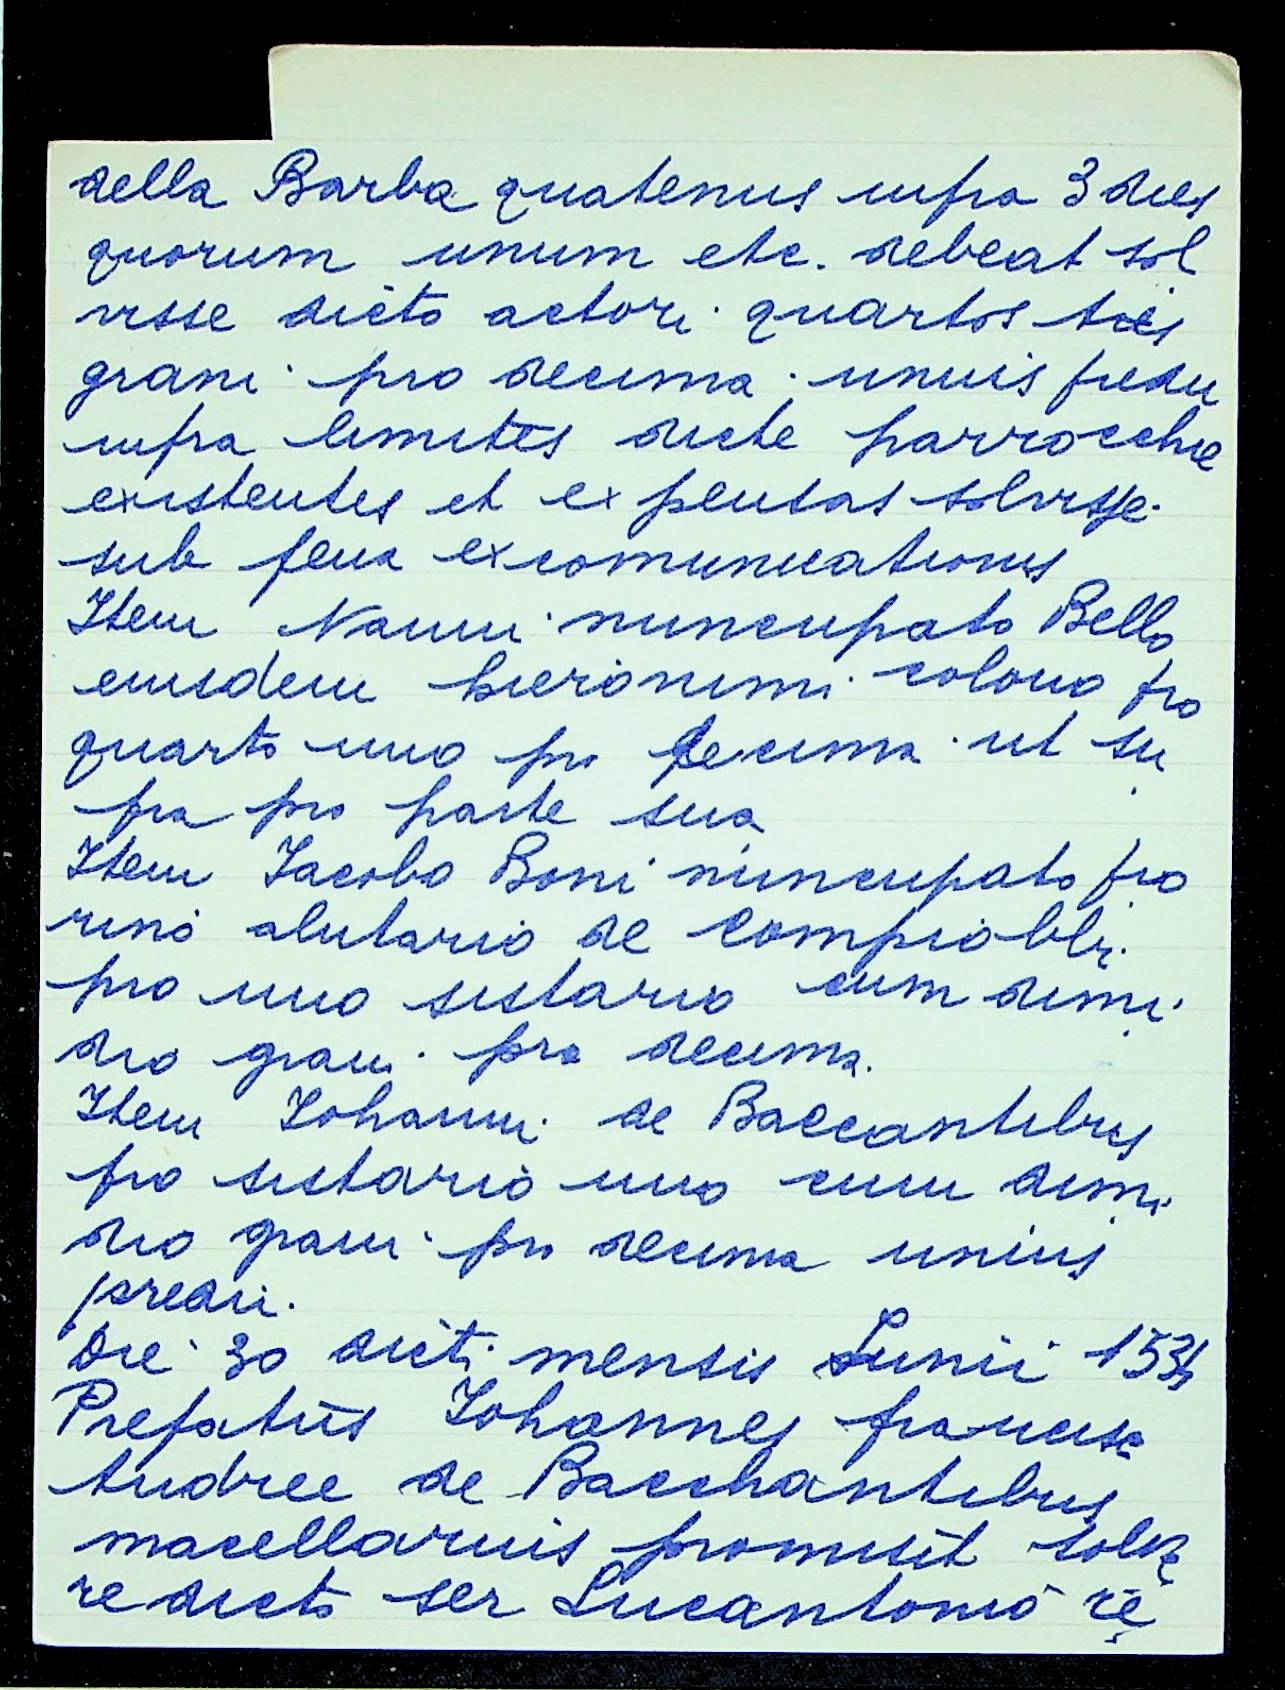 della Barba quatenus infra 3 dies
quorum unum etc. debeat sol
visse dicto actori quartos tres
grani pro decima unius predii
infra limites dicte parrocchie
existentes et expensas solvisse
sub pena excomunicationis
Item Nanni nuncupato Bello
eiusdem hieronimi colono pro
quarto uno pro decima ut su
pra pro parte sua
Item Iacobo Boni nuncupato fio
rino alutario de Compiobbi
pro uno sistario cum dimi
dio grani pro decima.
Item Iohanni de Baccantibus
pro sistario uno cum dimi
dio grani pro decima unius
predii.
Die 30 dicti mensis Iunii
Prefatus Iohannes francisci
Andree de Bacchantibus
macellarius promisit solve
re dicto ser Lucantonio re